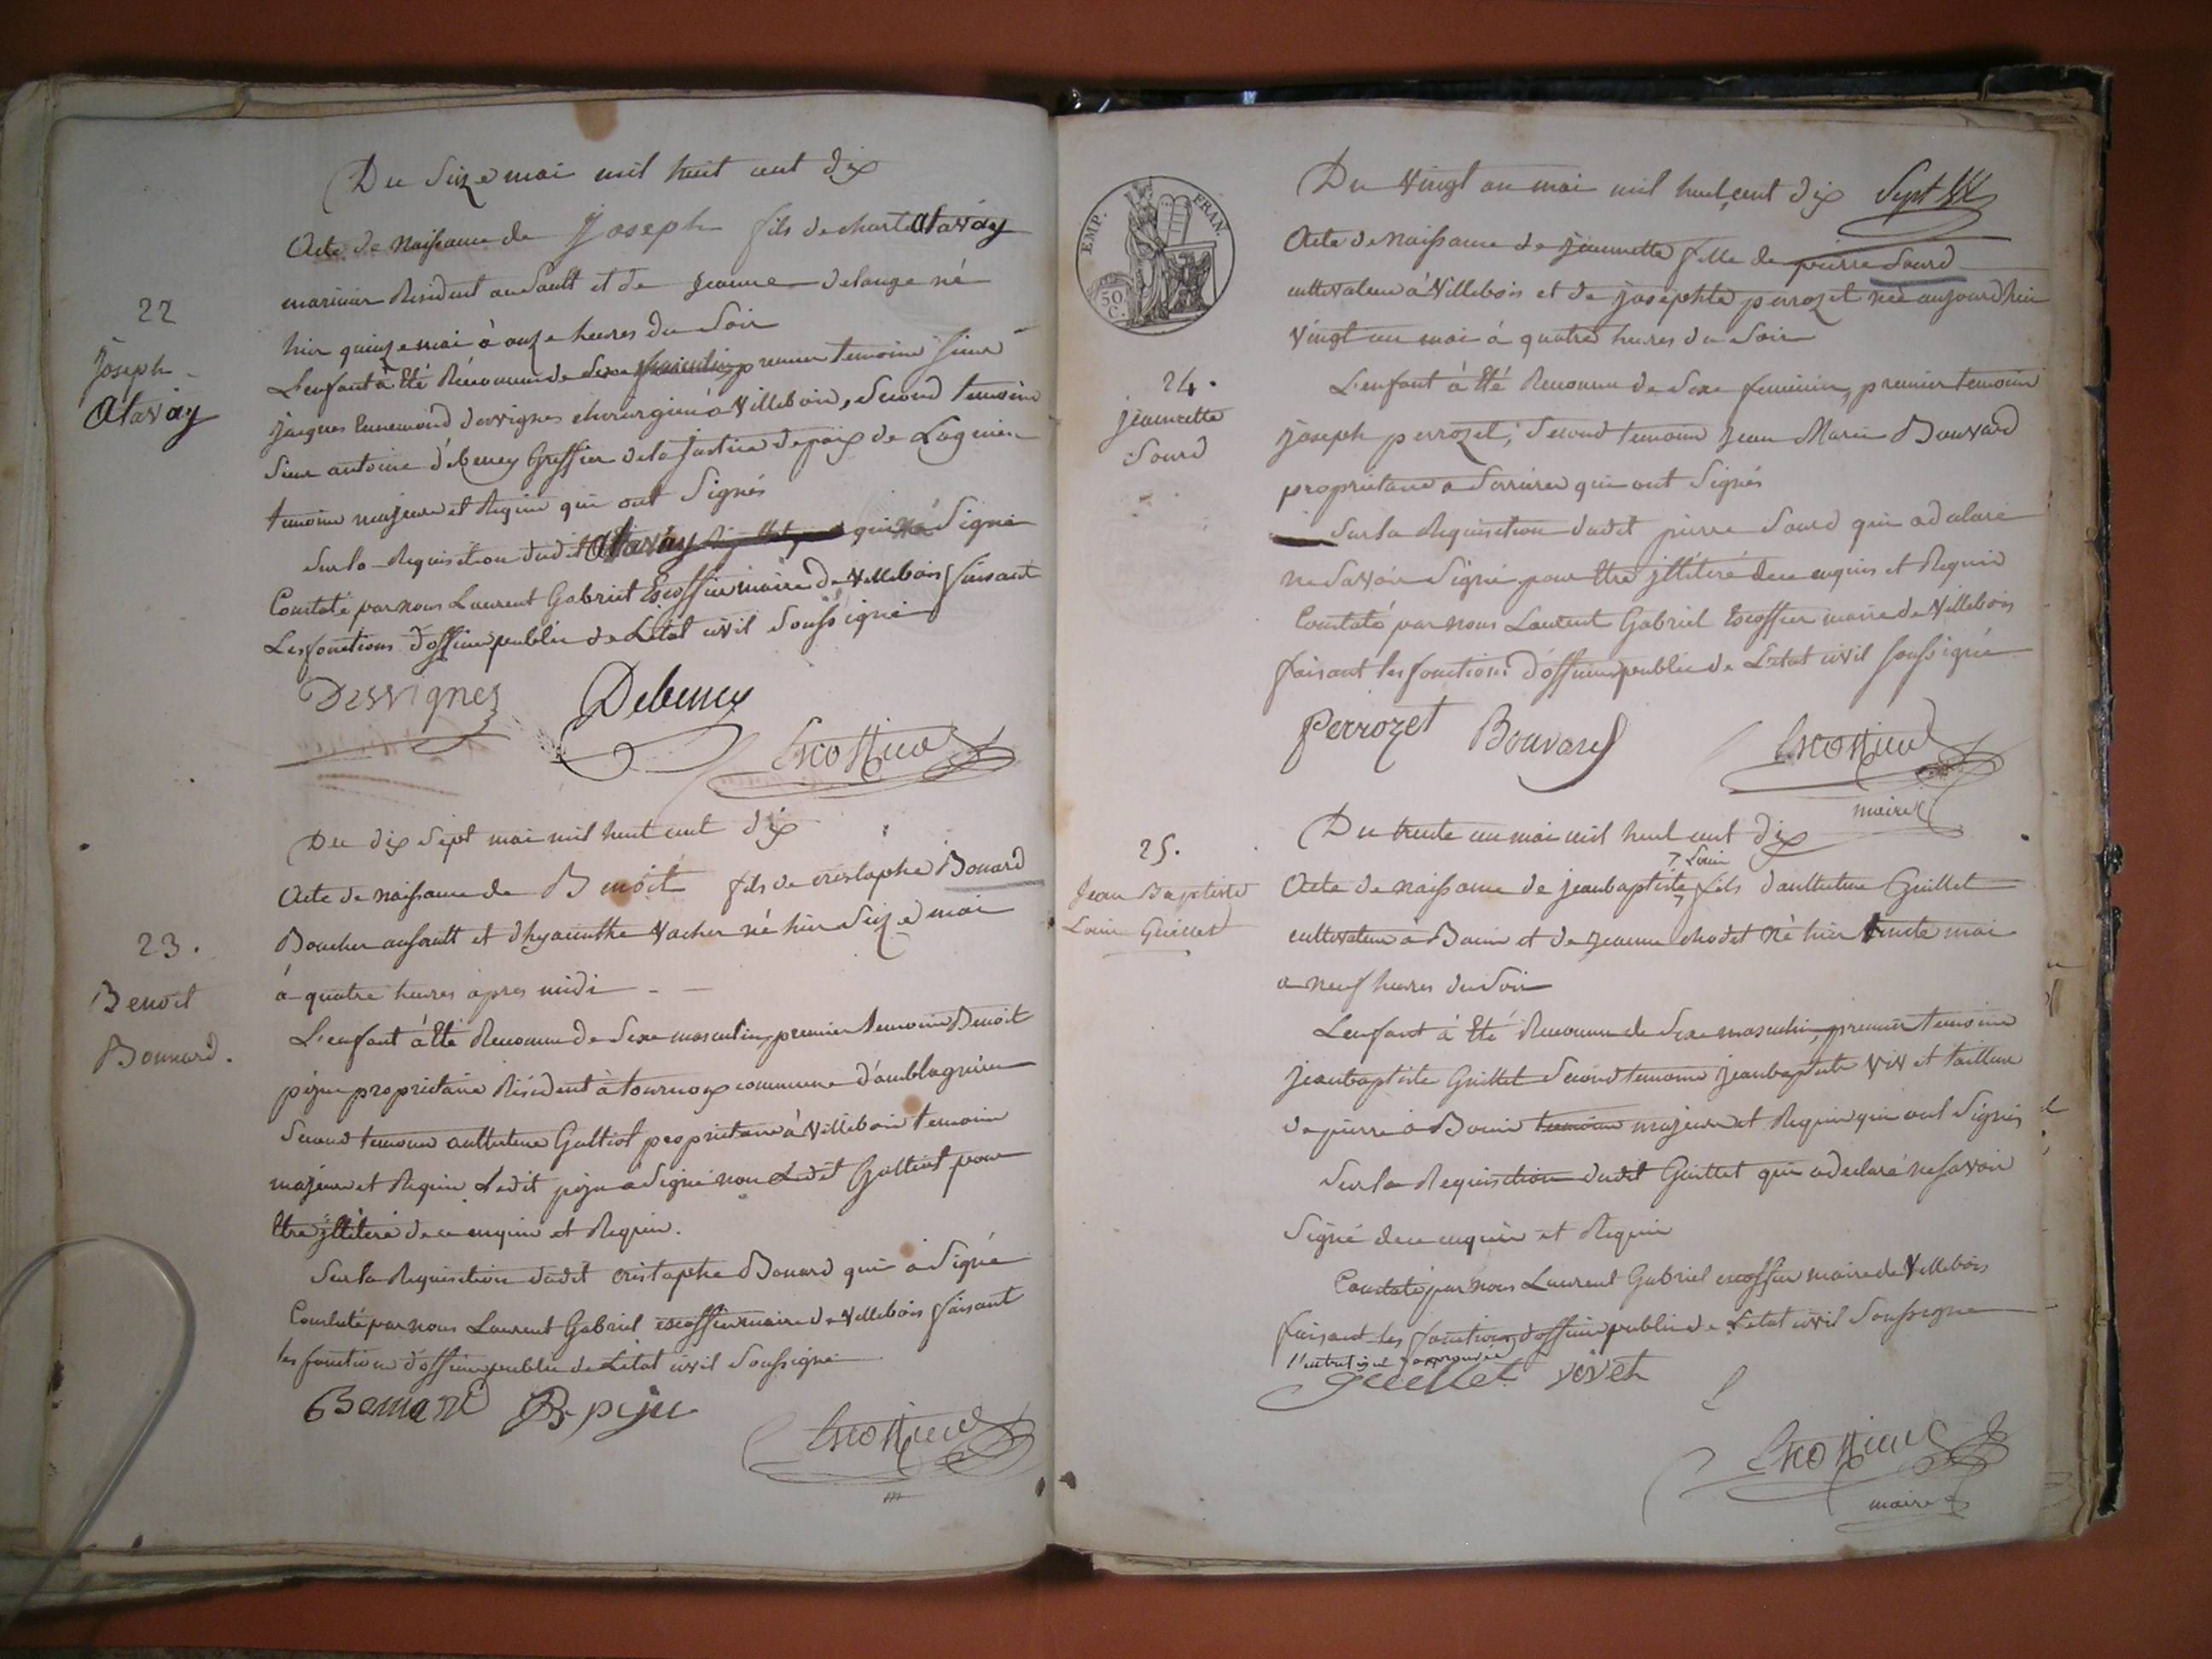 Du Seize mai mil huit cent dix
Acte de Naissance de Joseph fils de charle Alavay
marinier Résident au Sault et de jeanne delange né
hier quinze mai à onze heures du Soir
22
Joseph
Alavay
L'enfant à Eté Reconnu de Sexe masculin, premier temoin Sieur
jacques Ennemond desvignes chirurgien à Villebois, Second temoin
Sieur antoine débeney Greffier de la justice de paix de Lagnieu
temoins majeurs et Requis qui ont Signés
Sur la Requisition dudit Alavay qui Signé
Constaté par nous Laurent Gabriel Escoffier maire de Villebois faisant
Les fonctions d'officier public de L'état civil Soussigné
Desvignes Debeney
Escoffier
Du dix Sept mai mil huit cent dix
Acte de naissance de Benoit fils de cristophe Bonard
Boucher au sault et d'hyacinthe Vacher né hier Seize mai
à quatre heures après midi
23.
Benoit
Bonnard.
L'enfant à Eté Reconnu de Sexe masculin, premier temoin Benoit
péju proprietaire Résident à tournoux commune d'amblagnieu
Second temoin anthelme Galliot proprietaire à Villebois temoin
majeurs et Requis Ledit péju a Signé non Ledit Galliot pour
Etre jlliteré de ce enquis et Requis.
Sur la Requisition dudit cristophe Bonard qui a Signé
Constaté par nous Laurent Gabriel escoffier maire de Villebois faisant
les fonction d'officier public de L'état civil Soussigné
Bonnard B. péju
Escoffier
m
EMP. FRAN.
50 C.
Du Vingt un mai mil huit cent dix Sept
Acte de Naissance de jeannette fille de pierre Sourd
cultivateur à Villebois et de josephte perrozet née aujourd'hui
Vingt un mai à quatre heures du Soir
24.
jeannette
Sourd
L'enfant à Eté Reconnu de Sexe feminin, premier temoin
joseph perrozet, Second temoin jean Marie Bouvard
proprietaire a Serrieres qui ont Signés
Sur la Requisition dudit pierre Sourd qui a déclaré
ne Savoir Signé pour Etre jlliteré de ce enquis et Requis
Constaté par nous Laurent Gabriel Escoffier maire de Villebois
faisant les fonctions d'officier public de L'état civil Soussigné
Perrozet Bouvard
Escoffier
maire
Du trente un mai mil huit cent dix
Louis
Acte de naissance de jean baptiste, fils d'anthelme Guillet
cultivateur a Bouis et de jeanne chodet né hier trente mai
a neuf heures du Soir
25.
Jean Baptiste
Louis Guillet
L'enfant à Eté Reconnu de Sexe masculin, premier temoin
jean baptiste Guillet Second temoin jean baptiste Vivet tailleur
de pierre a Bouis temoins majeurs et Requis qui ont Signés
Sur la Requisition dudit Guillet qui a declaré ne Savoir
Signé de ce enquis et Requis
Constaté par nous Laurent Gabriel escoffier maire de Villebois
faisant les fonctions d'officier public de L'etat civil Soussigné
guellet vivet
Escoffier
maire